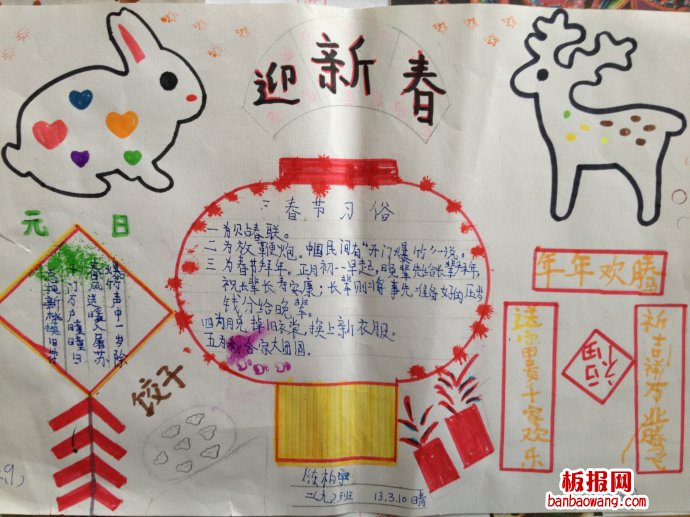 迎新春
春节习俗
一为贴春联。
二为放鞭炮。中国民间有"开门爆竹"一说。
三为春节拜年。正月初一早起,晚辈先给长辈拜年,
祝长辈长寿安康,长辈则将事先准备好的压岁
钱分给晚辈。
四为脱掉旧衣裳,换上新衣服。
五为 合家大团圆。
元 日
爆竹声中一岁除
春风送暖入屠苏
千门万户曈曈日
总把新桃换旧符
饺子
年年欢腾
送富贵千家欢乐
福
祈吉祥万业腾飞
二(九)班 13.3.10 晴
板报网
banbaowang.com